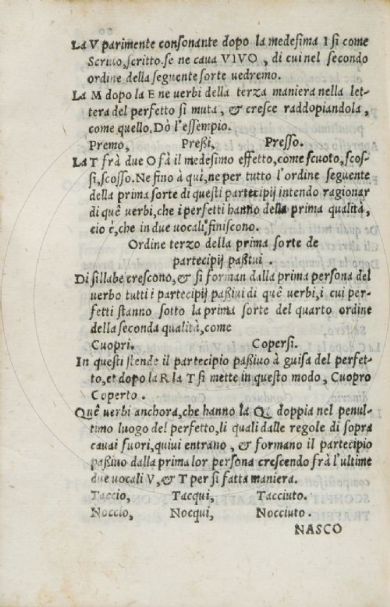 La V parimente consonante dopo la medesima I si come
Scriuo, scritto. se ne caua VIVO, di cui nel secondo
ordine della seguente sorte uedremo.
La M dopo la E ne uerbi della terza maniera nella let-
tera del perfetto si muta, & cresce raddopiandola,
come quello. Dò l'essempio.
Premo, Preßi, Presso.
La T frà due O fà il medesimo effetto, come scuoto, scos-
si, scosso. Ne fino à qui, ne per tutto l'ordine seguente
della prima sorte di questi partecipij intendo ragionar
di què verbi, che i perfetti hanno della prima qualità,
cio è, che in due uocali finiscono.
Ordine terzo della prima sorte de
partecipij paßiui.
Di sillabe crescono, & si forman dalla prima persona del
uerbo tutti i partecipij paßiui di què uerbi, i cui per-
fetti stanno sotto la prima sorte del quarto ordine
della seconda qualità, come
Cuopri. Copersi.
In questi stende il partecipio paßiuo à guisa del perfet-
to, et dopo la R la T si mette in questo modo, Cuopro
Coperto.
Què uerbi anchora, che hanno la Q doppia nel penul-
timo luogo del perfetto, li quali dalle regole di sopra
cauai fuori, quiui entrano, & formano il partecipio
paßiuo dalla prima lor persona crescendo frà l'ultime
due uocali V, & T per si fatta maniera.
Taccio, Tacqui, Tacciuto.
Noccio, Nocqui, Nocciuto.
NASCO